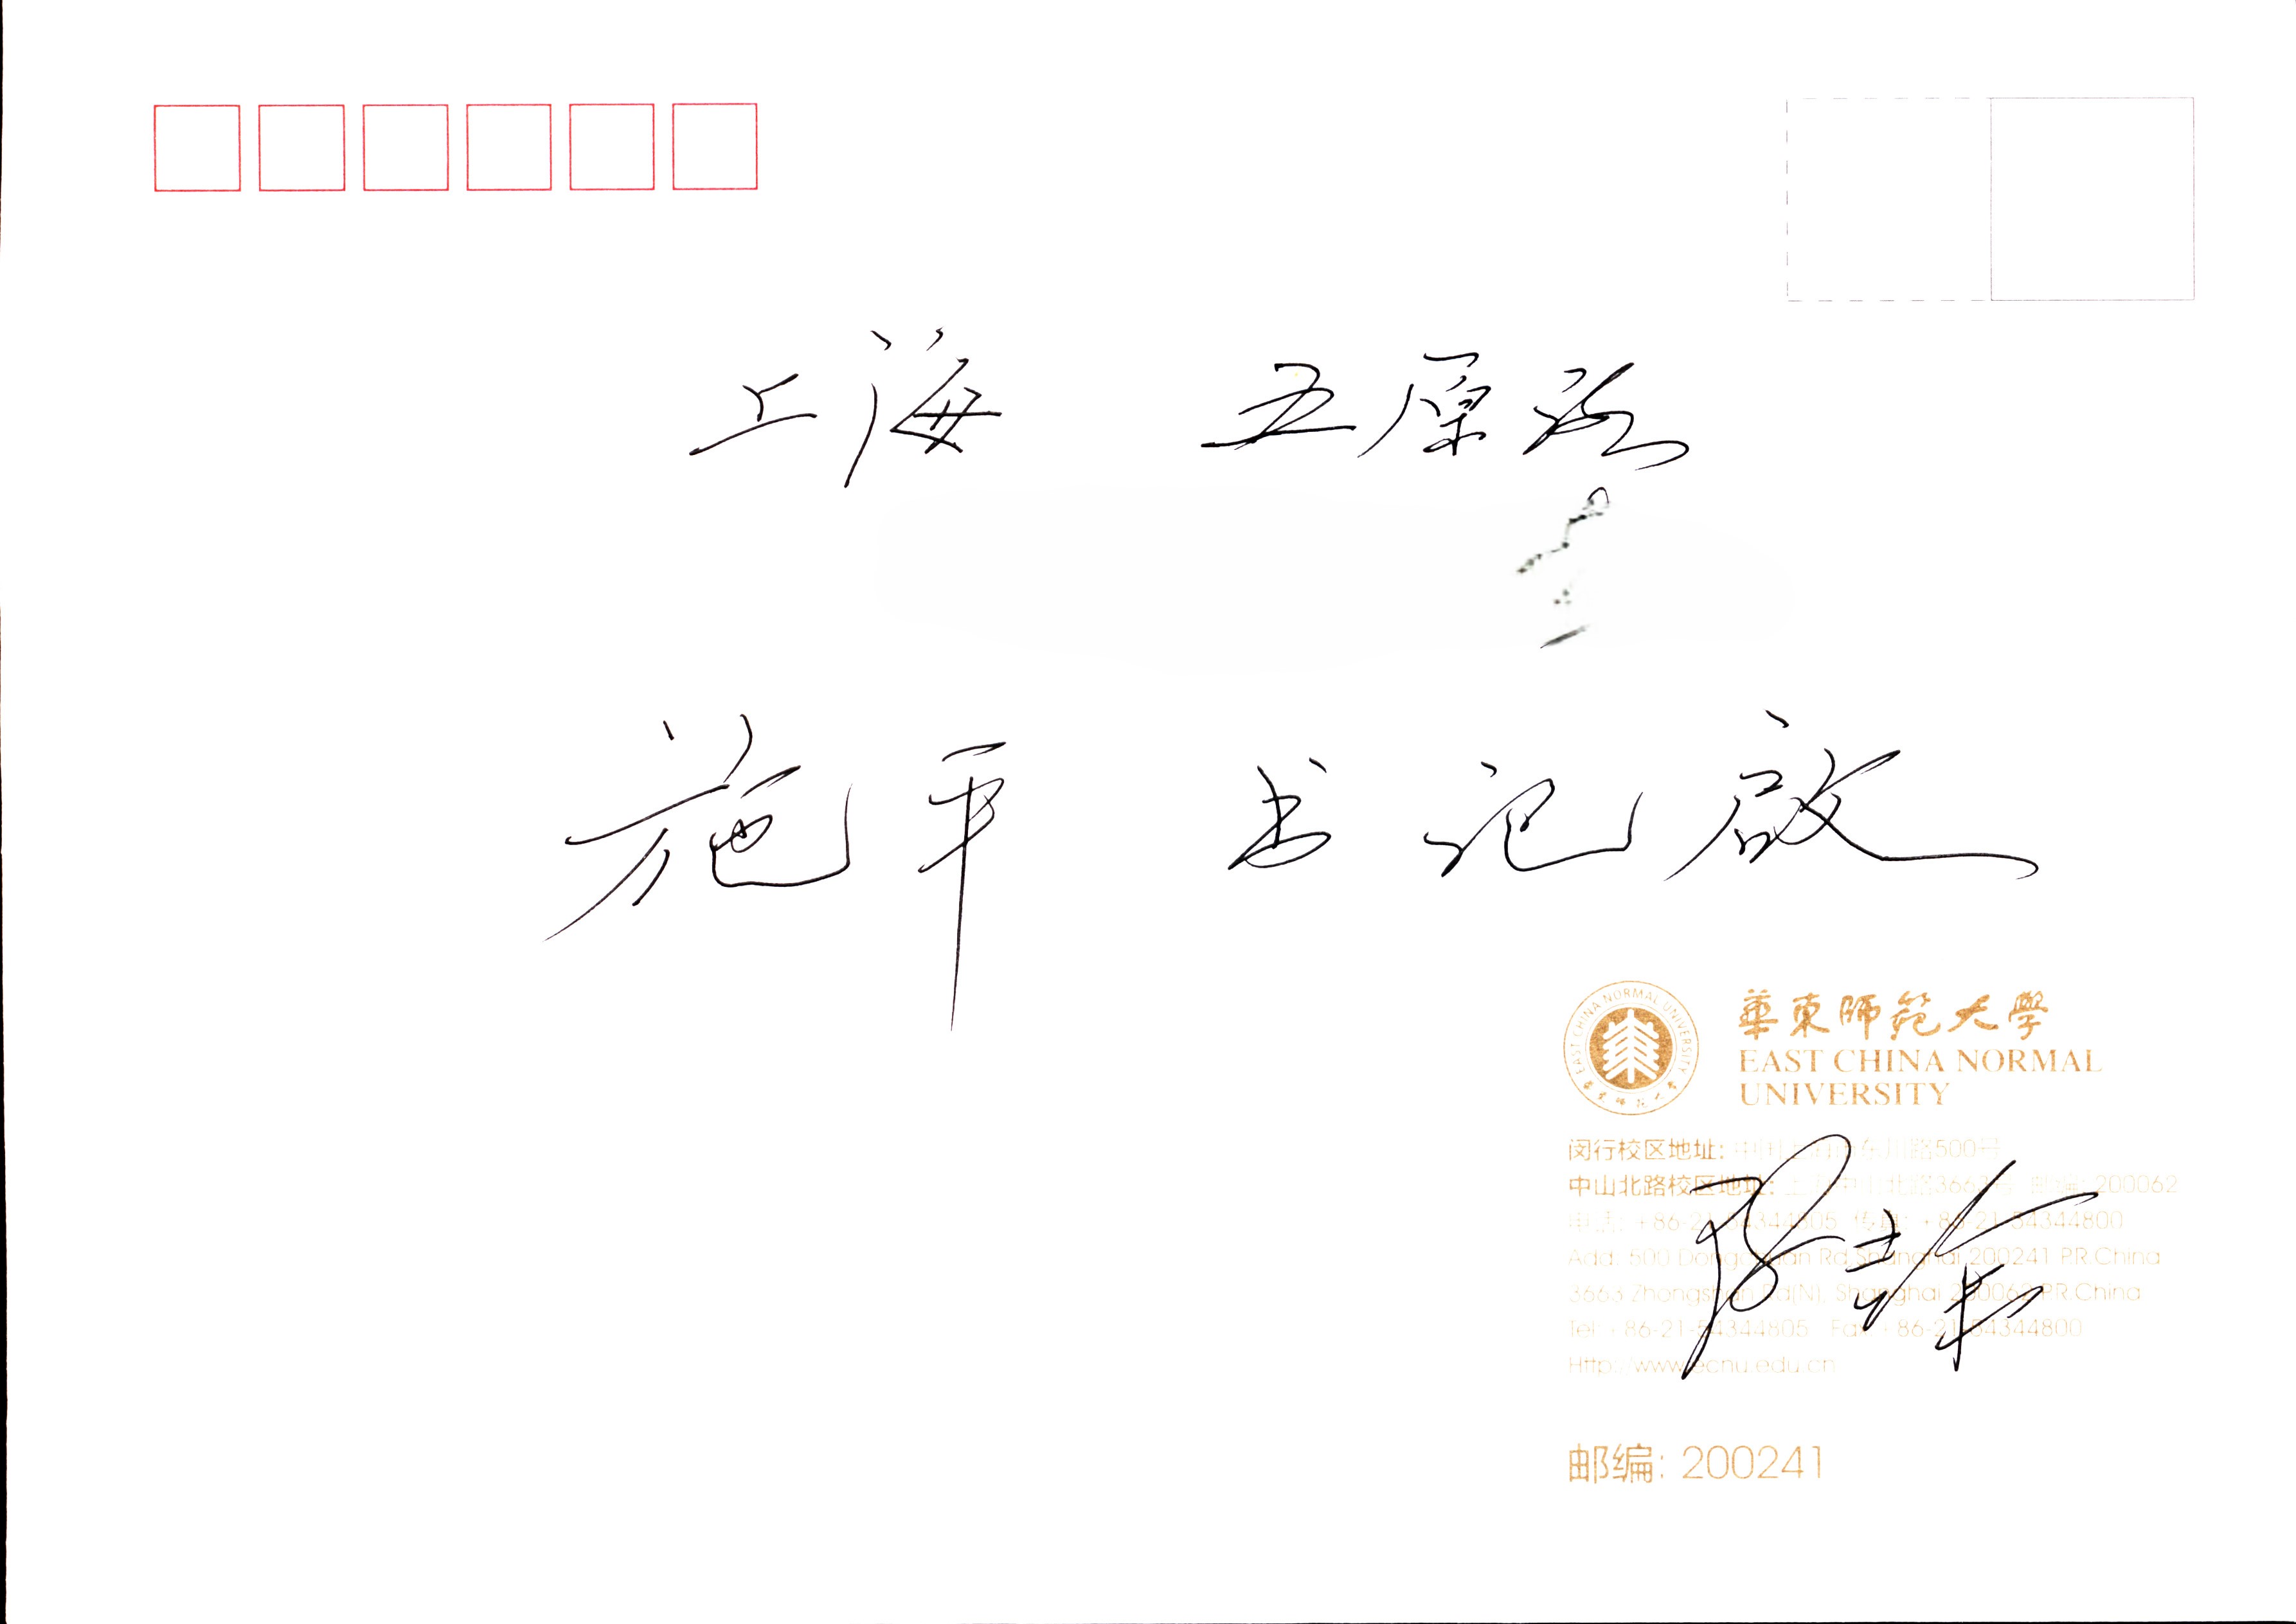 上海 五原路
施平 书记启
EAST CHINA NORMAL UNIVERSITY
華東師範大學
華東師範大學
EAST CHINA NORMAL
UNIVERSITY
闵行校区地址: 中国上海市东川路500号
中山北路校区地址: 上海中山北路3663号 邮编: 200062
电话: +86-21-54344805 传真: +86-21-54344800
Add: 500 Dongchuan Rd, Shanghai 200241 PR.China
3663 Zhongshan Rd(N), Shanghai 200062 PR.China
Tel: +86-21-54344805 Fax: +86-21-54344800
Http://www.ecnu.edu.cn
邮编: 200241